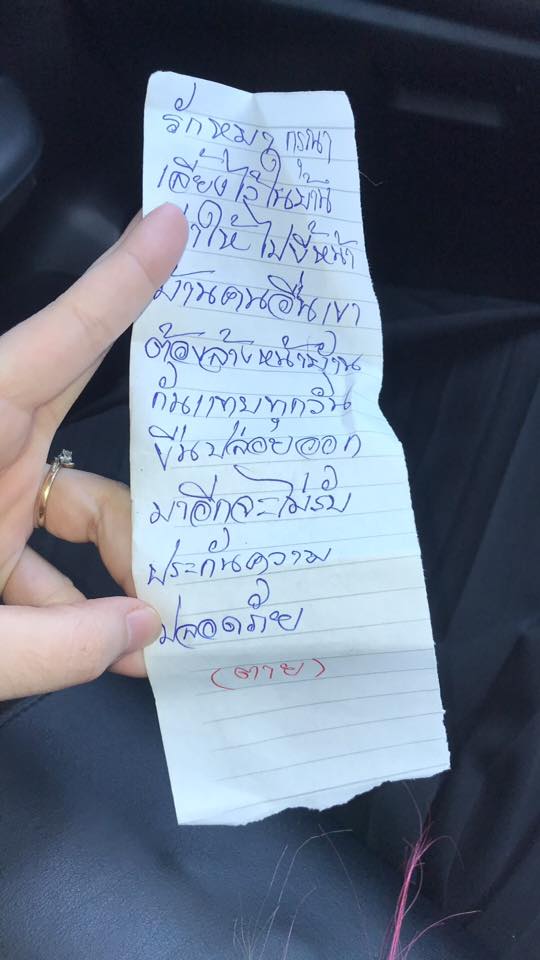 รักหมา กรุณา
เลี้ยงไว้ในบ้าน
อย่าให้ ไปขี้หน้า
บ้านคนอื่น เขา
ต้องล้างหน้าบ้าน
กันแทบทุกวัน
ขืนปล่อยออก
มาอีกจะไม่รับ
ประกันความ
ปลอดภัย
(ตาย)